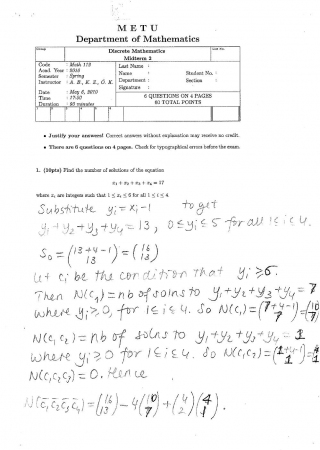 M E T U
Department of Mathematics
Group
List No.
Discrete Mathematics
Midterm 2
Code : Math 112
Acad. Year : 2010
Semester : Spring
Instructor : A. B., K. Z., Ö. K.
Date : May 6, 2010
Time : 17:30
Duration : 90 minutes
Last Name :
Name : Student No. :
Department : Section :
Signature :
6 QUESTIONS ON 4 PAGES
61 TOTAL POINTS
1 2 3 4 5 6
• Justify your answers! Correct answers without explanation may receive no credit.
• There are 6 questions on 4 pages. Check for typographical errors before the exam.
1. (10pts) Find the number of solutions of the equation
x₁ + x₂ + x₃ + x₄ = 17
where xᵢ are integers such that 1 ≤ xᵢ ≤ 6 for all 1 ≤ i ≤ 4.
Substitute yᵢ = xᵢ - 1 to get
y₁ + y₂ + y₃ + y₄ = 13, 0 ≤ yᵢ ≤ 5 for all 1 ≤ i ≤ 4.
S₀ = (13+4-1 13) = (16 13)
Let cᵢ be the condition that yᵢ ≥ 6.
Then N(c₁) = nb of solns to y₁ + y₂ + y₃ + y₄ = 7
where yᵢ ≥ 0, for 1 ≤ i ≤ 4. So N(c₁) = (7+4-1 7) = (10 7)
N(c₁c₂) = nb of solns to y₁ + y₂ + y₃ + y₄ = 1
where yᵢ ≥ 0 for 1 ≤ i ≤ 4. So N(c₁c₂) = (1+4-1 1) = (4 1)
N(c₁c₂c₃) = 0. Hence
N(c̄₁c̄₂c̄₃c̄₄) = (16 13) - 4(10 7) + (4 2)(4 1).